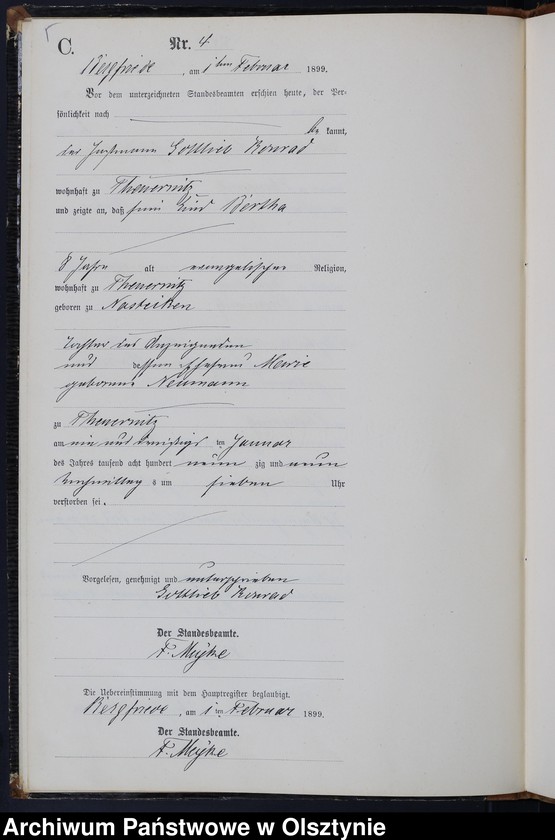 C.
Nr. 4.
Bergfriede, am 1ten Februar 1899.
Vor dem unterzeichneten Standesbeamten erschien heute, der Per-
sönlichkeit nach
be kannt,
der Gottlieb Konrad
wohnhaft zu Theuernitz
und zeigte an, daß sein Kind Bertha
8 Jahre alt evangelischer Religion,
wohnhaft zu Theuernitz
geboren zu Nasteiken
Tochter des Anzeigenden
und dessen Ehefrau Marie
geborene Neumann
zu Theuernitz
am ein und dreißigs ten Januar
des Jahres tausend acht hundert neun zig und neun
Nachmittag s um sieben Uhr
verstorben sei.
Vorgelesen, genehmigt und unterschrieben
Gottlieb Konrad
Der Standesbeamte.
Die Uebereinstimmung mit dem Hauptregister beglaubigt.
Bergfriede, am 1ten Februar 1899.
Der Standesbeamte.
Archiwum Państwowe w Olsztynie